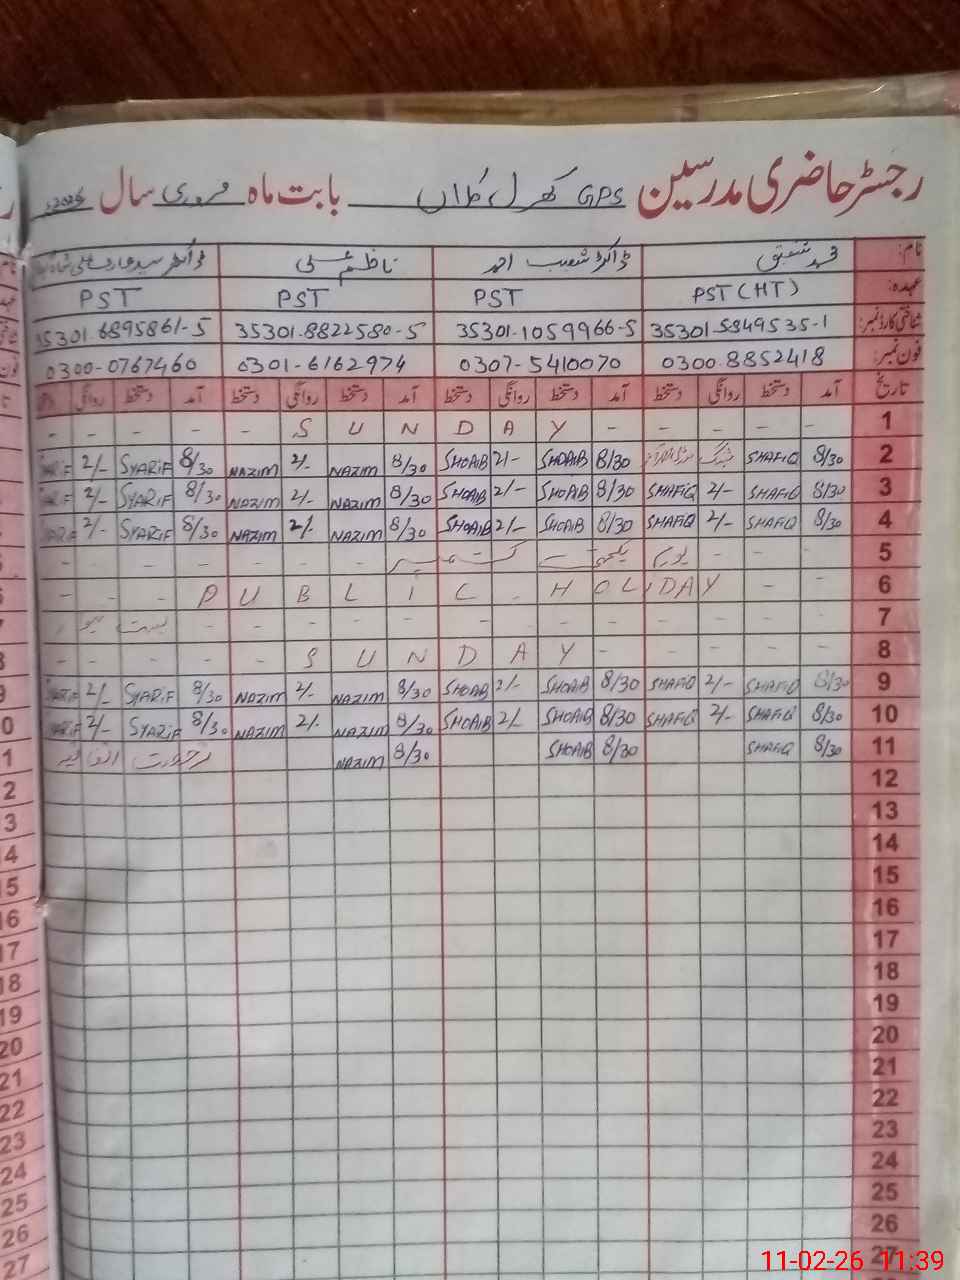 رجسٹر حاضری مدرسین GPS کھرل کلاں بابت ماہ فروری سال 2026ء
نام: محمد شفیق ڈاکٹر شعیب احمد ناظم علی
عہدہ: PST (HT) PST PST PST
شناختی کارڈ نمبر: 35301-5849535-1 35301-1059966-5 35301-8822580-5 35301-6895861-5
فون نمبر: 0300-8852418 0307-5410070 0301-6162974 0300-0767460
تاریخ آمد دستخط روانگی دستخط آمد دستخط روانگی دستخط آمد دستخط روانگی دستخط آمد دستخط روانگی
1 - - - - SUNDAY - - - - - -
2 8/30 SHAFIQ 8/30 SHOAIB 2/- SHOAIB 8/30 NAZIM 2/- NAZIM 8/30 SYARIF 2/-
3 8/30 SHAFIQ 2/- SHAFIQ 8/30 SHOAIB 2/- SHOAIB 8/30 NAZIM 2/- NAZIM 8/30 SYARIF 2/-
4 8/30 SHAFIQ 2/- SHAFIQ 8/30 SHOAIB 2/- SHOAIB 8/30 NAZIM 2/- NAZIM 8/30 SYARIF 2/-
5 - - - یوم یکجہتی کشمیر - - - - - -
6 - - PUBLIC HOLIDAY - - -
7 - - - - - - - - - - - -
8 - - - - SUNDAY - - - - - -
9 8/30 SHAFIQ 2/- SHAFIQ 8/30 SHOAIB 2/- SHOAIB 8/30 NAZIM 2/- NAZIM 8/30 SYARIF 2/-
10 8/30 SHAFIQ 2/- SHAFIQ 8/30 SHOAIB 2/- SHOAIB 8/30 NAZIM 2/- NAZIM 8/30 SYARIF 2/-
11 8/30 SHAFIQ 8/30 SHOAIB 8/30 NAZIM رخصت اتفاقیہ
12
13
14
15
16
17
18
19
20
21
22
23
24
25
26
27
11-02-26 11:39